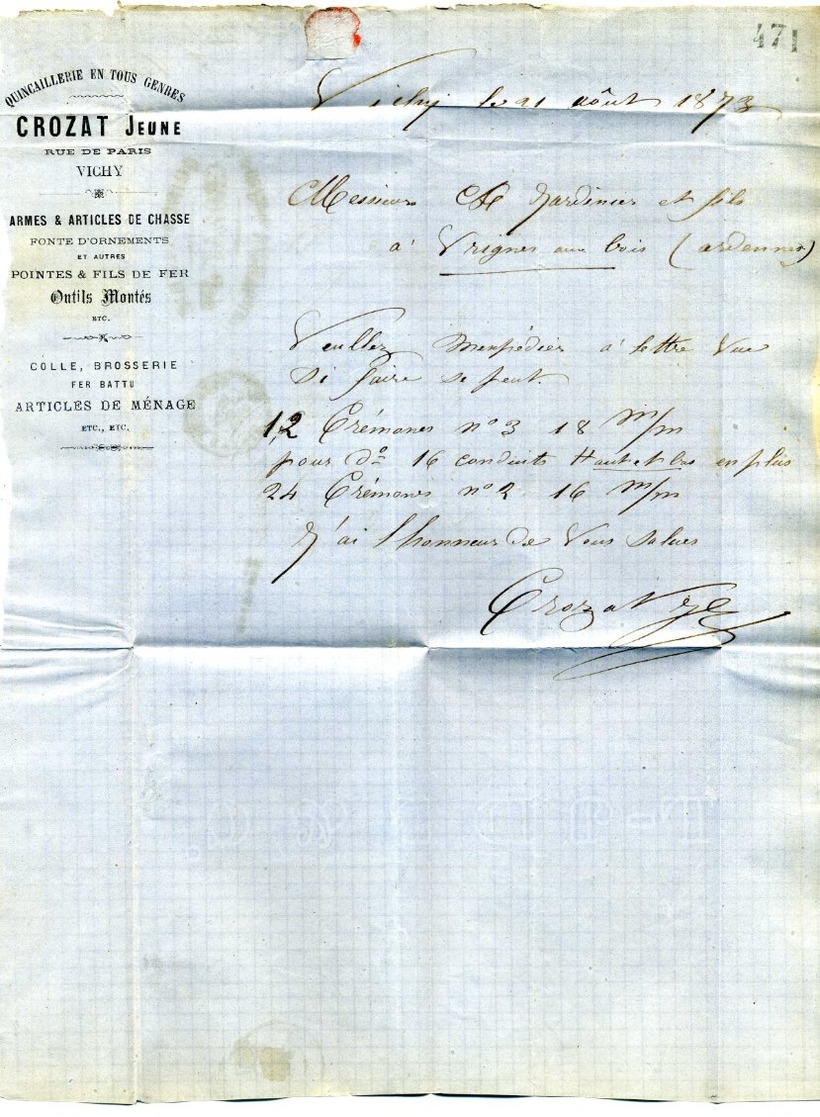 471
QUINCAILLERIE EN TOUS GENRES
CROZAT JEUNE
RUE DE PARIS
VICHY
ARMES & ARTICLES DE CHASSE
FONTE D'ORNEMENTS
ET AUTRES
POINTES & FILS DE FER
Outils Montés
ETC.
COLLE, BROSSERIE
FER BATTU
ARTICLES DE MÉNAGE
ETC., ETC.
Vichy le 21 août 1873
Messieurs Jardinier et fils
a' Vrignes aux bois (ardennes)
Veullez m'expédier a' lettre Vue
Si faire se peut.
12 Crémones n° 3 18 m/m
pour do 16 conduits Haut et bas en plus
24 Crémones n° 2 16 m/m
J'ai l'honneur de Vous Saluer
Crozat Jne